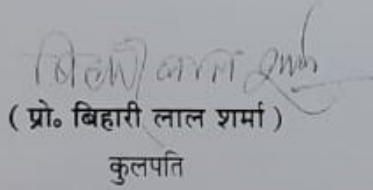 बिहारी लाल शर्मा
( प्रो० बिहारी लाल शर्मा )
कुलपति